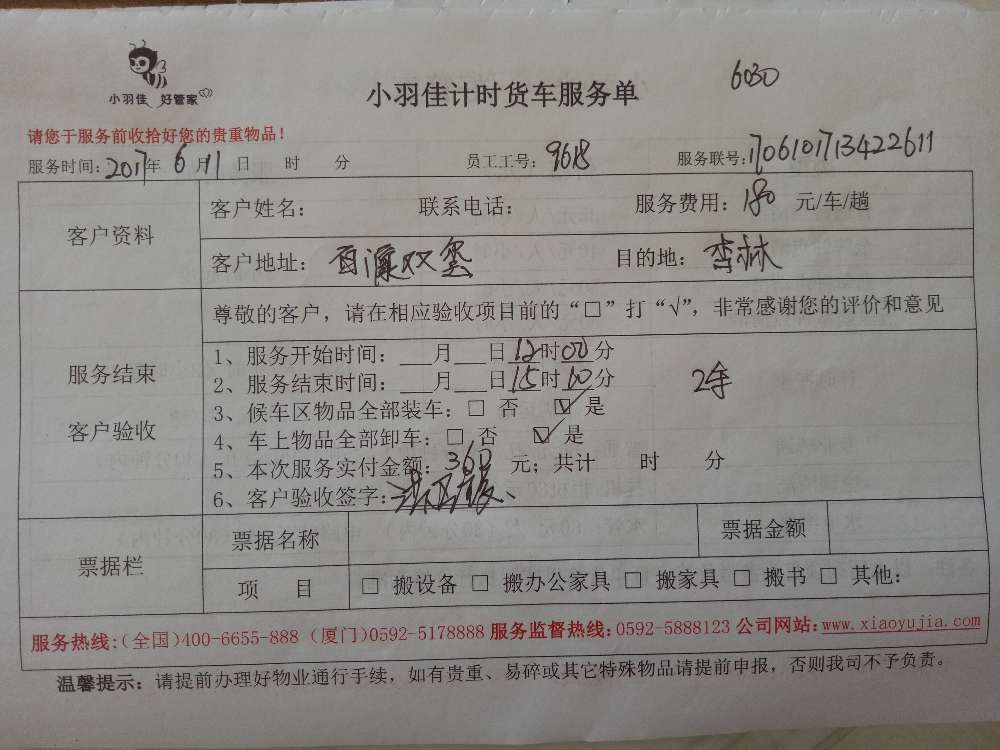 6030
小羽佳 好管家
小羽佳计时货车服务单
请您于服务前收拾好您的贵重物品！
服务时间：2017年 6月11日 时 分 员工工号：9618 服务联号：170610171342261​1
客户资料
客户姓名： 联系电话： 服务费用：180 元/车/趟
客户地址：百源双玺 目的地：杏林
服务结束
客户验收
尊敬的客户，请在相应验收项目前的“□”打“√”，非常感谢您的评价和意见
1、服务开始时间：___月___日12时00分
2、服务结束时间：___月___日15时00分
2车
3、候车区物品全部装车：□ 否 ☑ 是
4、车上物品全部卸车：□ 否 ☑ 是
5、本次服务实付金额：360 元；共计 时 分
6、客户验收签字：
票据栏
票据名称 票据金额
项 目 □ 搬设备 □ 搬办公家具 □ 搬家具 □ 搬书 □ 其他：
服务热线:(全国)400-6655-888 (厦门)0592-5178888 服务监督热线:0592-5888123 公司网站:www.xiaoyujia.com
温馨提示：请提前办理好物业通行手续，如有贵重、易碎或其它特殊物品请提前申报，否则我司不予负责。